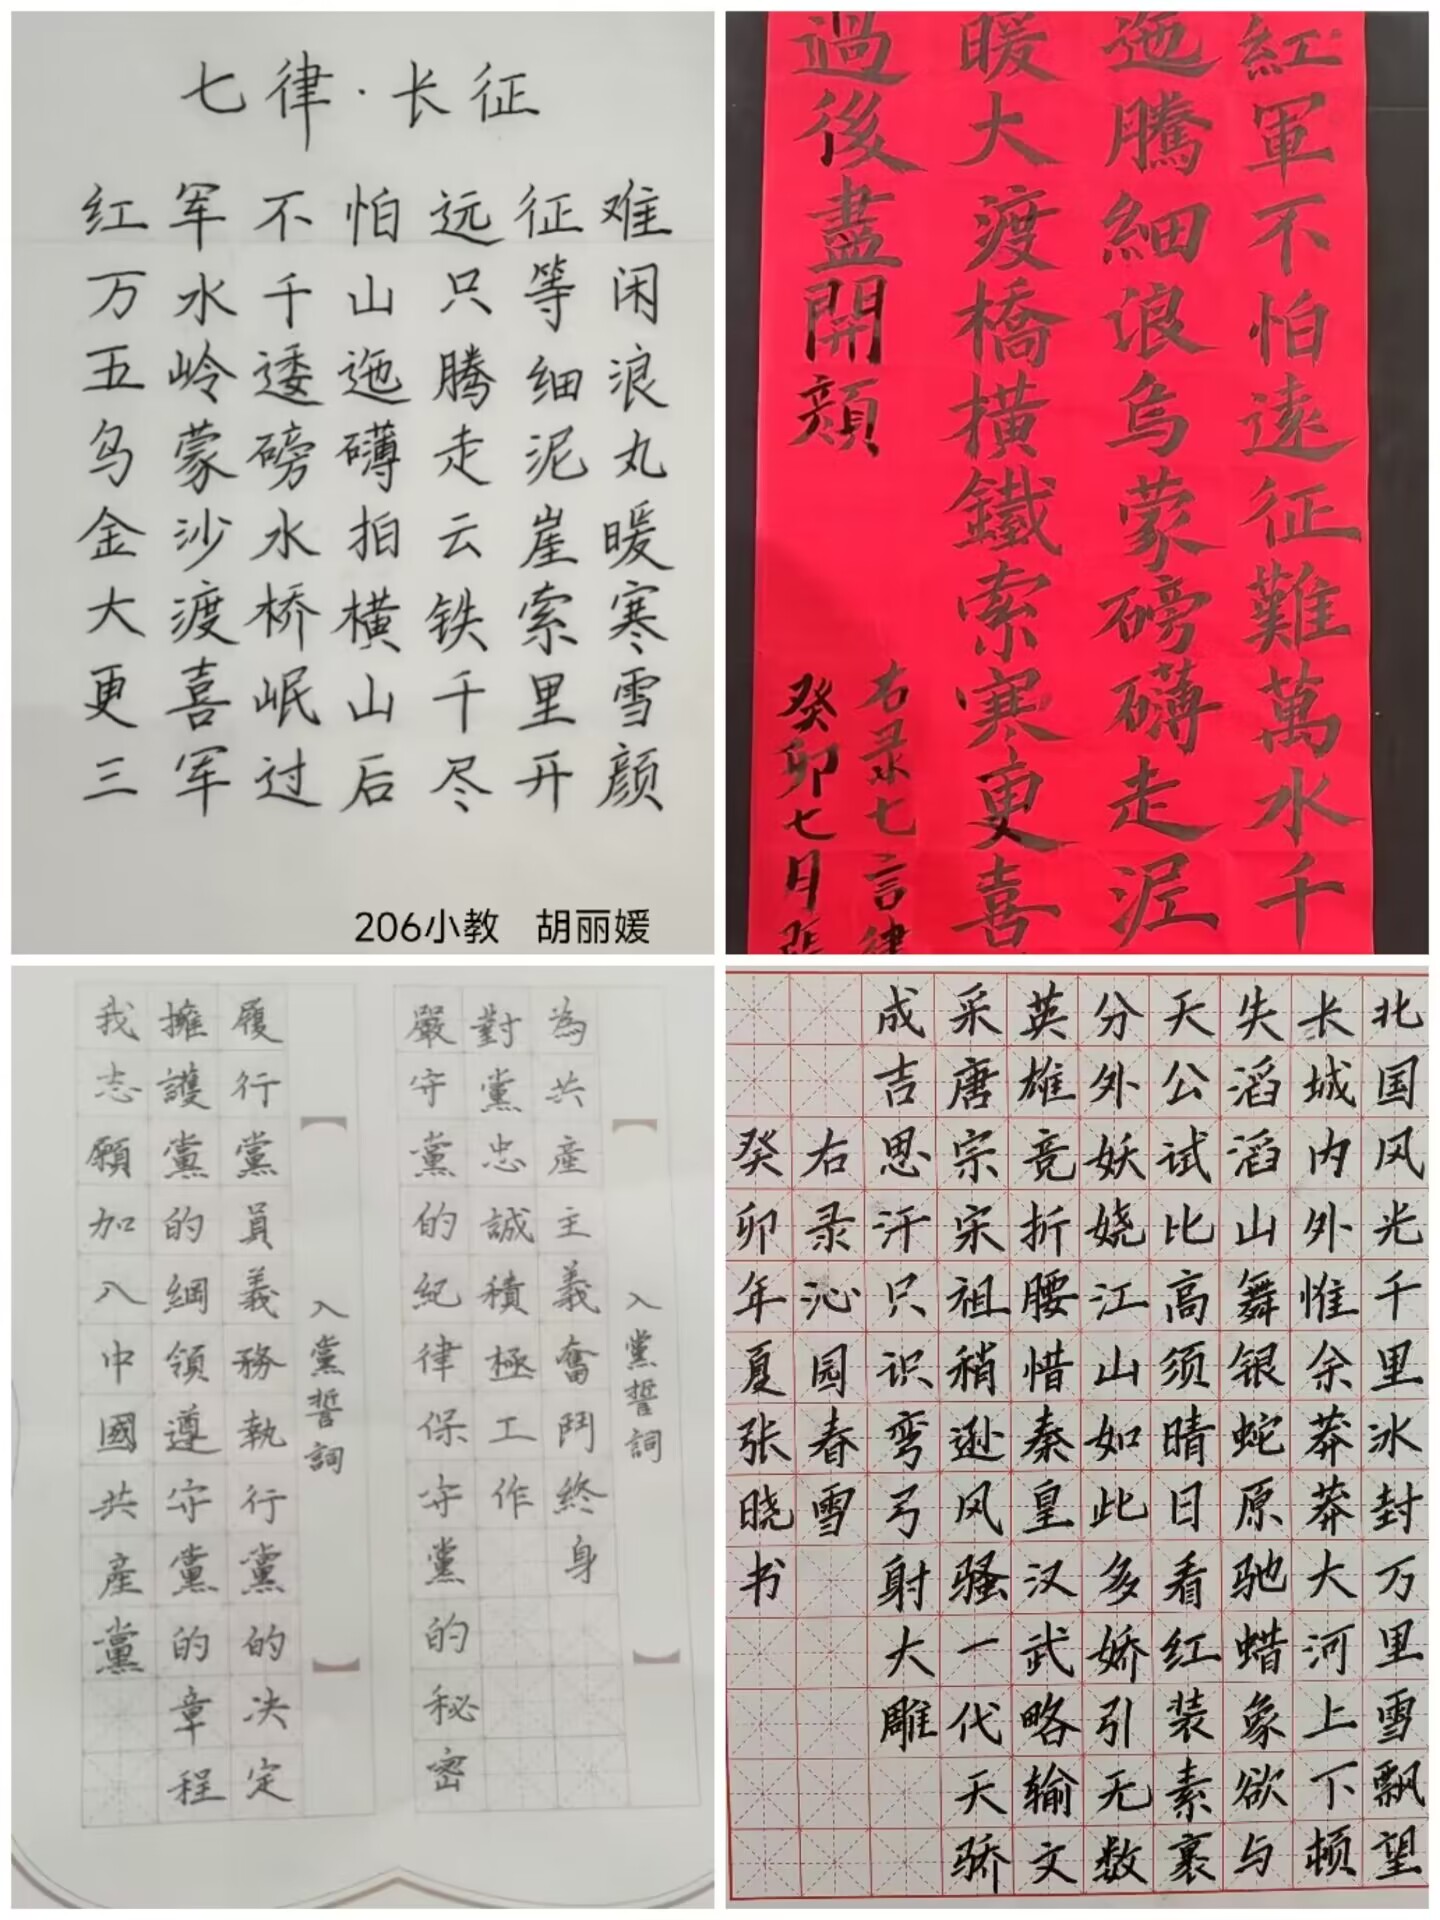 七律·长征
红军不怕远征难
万水千山只等闲
五岭逶迤腾细浪
乌蒙磅礴走泥丸
金沙水拍云崖暖
大渡桥横铁索寒
更喜岷山千里雪
三军过后尽开颜
206小教 胡丽媛
紅軍不怕遠征難萬水千
迤騰細浪烏蒙磅礴走泥
暖大渡橋橫鐵索寒更喜
過後盡開顏
右录七言律
癸卯七月張
我志願加入中國共產黨
擁護黨的綱領遵守黨的章程
履行黨員義務執行黨的决定
入黨誓詞
嚴守黨的紀律保守黨的秘密
對黨忠誠積極工作
為共產主義奮鬥終身
入黨誓詞
北国风光千里冰封万里雪飘望
长城内外惟余莽莽大河上下顿
失滔滔山舞银蛇原驰蜡象欲与
天公试比高须晴日看红装素裹
分外妖娆江山如此多娇引无数
英雄竞折腰惜秦皇汉武略输文
采唐宗宋祖稍逊风骚一代天骄
成吉思汗只识弯弓射大雕
右录沁园春雪
癸卯年夏张晓书